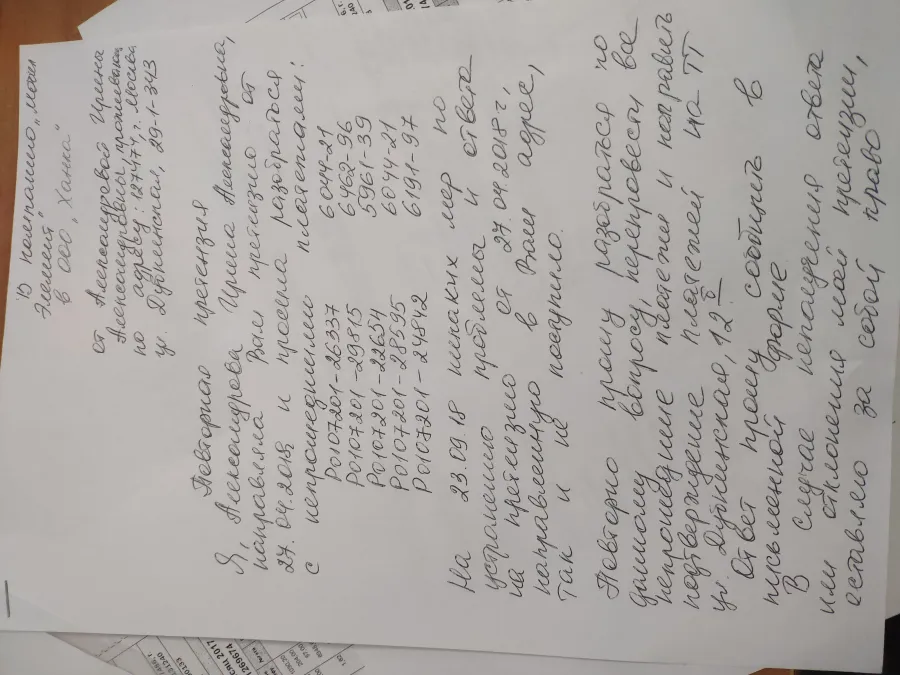 В компанию „Моя
Энергия"
в ООО „Ханна"
от Александровой Ирина
Александровны, проживающ
по адресу: 127474, г. Москва
ул. Дубнинская, 29-1-343
Повторная претензия
Я, Александрова Ирина Александровна,
направляла Вам претензию от
27.04.2018 и просила разобраться
с непрошедшими платежами:
РО107201-26337 6044-21
РО107201-29815 6462-96
РО107201-22654 5961-39
РО107201-28595 6044-21
РО107201-24842 6191-97
На 23.09.18 никаких мер по
устранению проблемы и ответа
на претензию от 27.04.2018г,
направленную в Ваш адрес,
так и не поступило.
Повторно прошу разобраться по
данному вопросу, перепровести все
непрошедшие платежи и направить
подтверждение платежей на ТТ
ул. Дубнинская, 12
Ответ прошу сообщить в
письменной форме.
В случае неполучения ответа
или отклонения моей претензии,
оставляю за собой право
269674